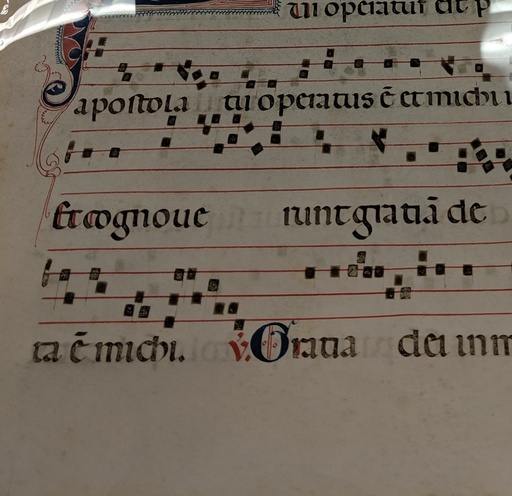 tui operatus est p
apostola tu operatus ē et michi
Et cognoue runt gratiā de
ta ē michi. v. Gratia dei in m